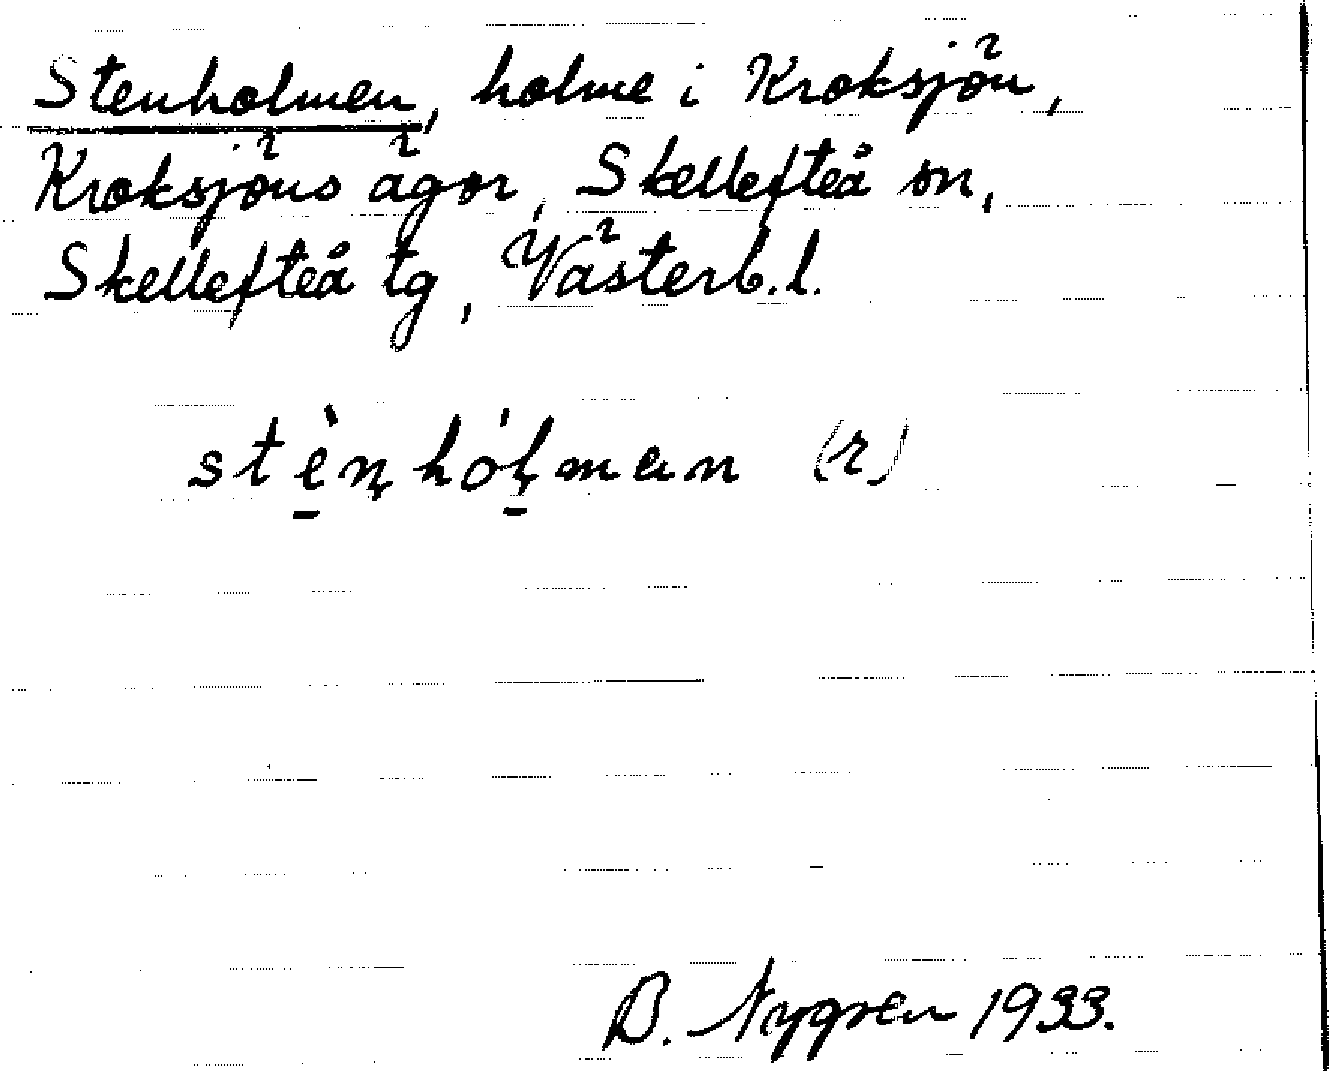 Stenholmen, holme i Kroksjön,
Kroksjöns ägor, Skellefteå sn,
Skellefteå tg, Västerb.l.
stè̱n̥hó̥l̥̱man (r)
B. Nygren 1933.